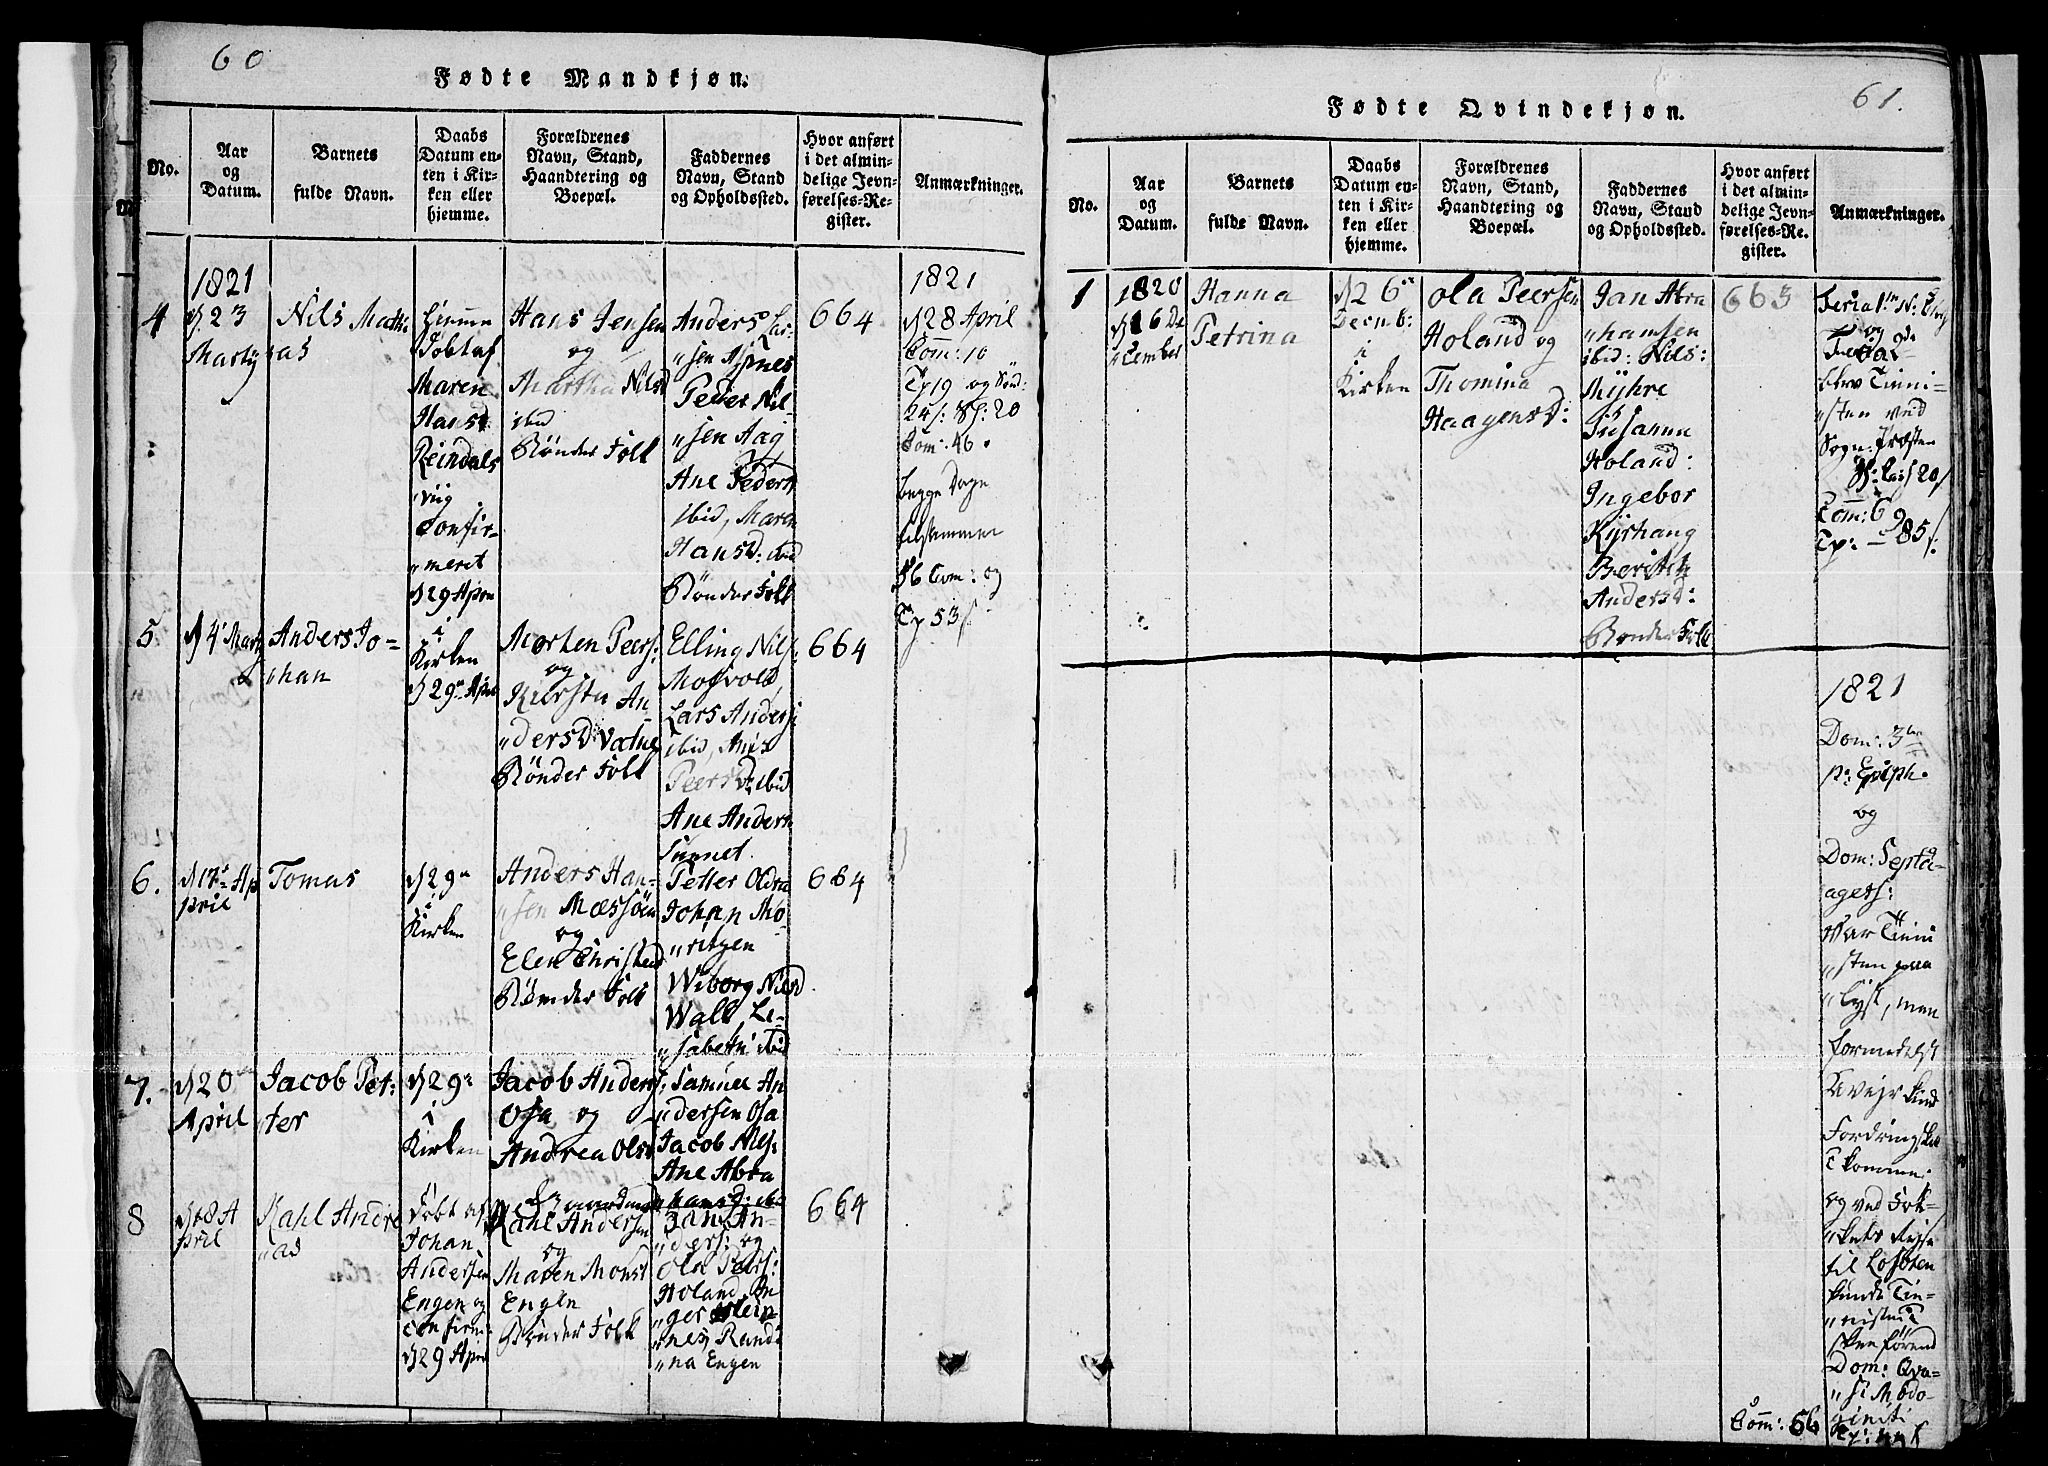 60
Fødte Mandkjøn.
No.
Aar
og
Datum.
Barnets
fulde Navn.
Daabs
Datum en-
ten i Kir-
ken eller
hjemme.
Forældrenes
Navn, Stand,
Haandtering og
Boepæl.
Faddernes
Navn, Stand
og Opholdssted.
Hvor anført
i det almin-
delige Jevn-
førelses-Re-
gister.
Anmærkninger.
1821
4
d. 23
Marty
Nils Math
ias
Hiemme
Døbt af
Maren
Hansd.
Reindals
"viig
Confir-
"meret
d 29 Apr
Hans Jensen
og
Martha Nilsd
ibid
Bönder Folk
Anders Lar-
"sen Aspnes
Peder Nil-
"sen Aag
Ane Peders
ibid, Maren
Hansd: ibid
Bönder Folk
664
1821
d 28 April
Com: 10
og
20
Com: 46.
begge Dage
tilsammen
56 Com: og
53
5.
d 4 Marty
Anders Jo-
"han
i
Kirken
d 29 Apr
Morten Peers:
og
Kiersta An
"dersd: Vatne
Bönder Folk
Elling Nils:
Mosvold
Lars Anders
ibid, Anis
Peers D: ibid
Ane Anders
Sunnet.
664
6.
d 17 Ap
pril
Tomas
d 29
i
Kirken
Anders Han-
"sen Mæssöen
og
Elen Christend
Bönder Folk
Petter Oldra
Johan Mo-
"ritzen
Wiborg Nilsd
Wall Le-
"sabeth ibid
664
7.
d 20
April
Jacob Pet:
ter
d 29
i
Kirken
Jacob Anders
Osa og
Andrea Olsd
Samuel An
"dersen Osa
Jacob Nils:
Ane Abra
"hamsd: ibid
8
d 18 A
pril
Kahl Andre
"as
Döbt af
Johan
Andersen
Engen og
Confirm:
d 29 Apr
Kahl Andersen
og
Maren Monsd
Engen
Bönder Folk
Jan An-
"ders: og
Ola Peers:
Holand, In
"ger Stein
"nes, Randi
"na Engen
664
61.
Fødte Qvindekjøn.
No.
Aar
og
Datum.
Barnets
fulde Navn.
Daabs
Datum en-
ten i Kir-
ken eller
hjemme.
Forældrenes
Navn, Stand,
Haandtering og
Boepæl.
Faddernes
Navn, Stand
og Opholdssted.
Hvor anført
i det almin-
delige Jevn-
førelses-Re-
gister.
Anmærkninger.
1
1820
d 16 De
"cember
Hanna
Petrina
d 26
Decmb:
i
Kirken
Ola Peersen
Holand og
Thomina
Haagensd:
Jan Abra
"hamsen
ibid: Nils:
Myhre
Susanna
Holand:
Ingebor
Kyrhaug
Berith
Andersd:
Bönder Folk
663
og
"sten ved
Sogne Præsten
20
Com: 6
85
1821
Dom: 3
p: Epiph.
og
Dom: Septua-
ages:
var Tieni
"sten paa
"lyst, men
formedelst
Uvejr
komme:
og ved Fok-
"kets Rejse
til Lofoten
kunde Tie-
"nisten
skee förend
Dom: Qva-
"si Modo-
geniti
Com: 56